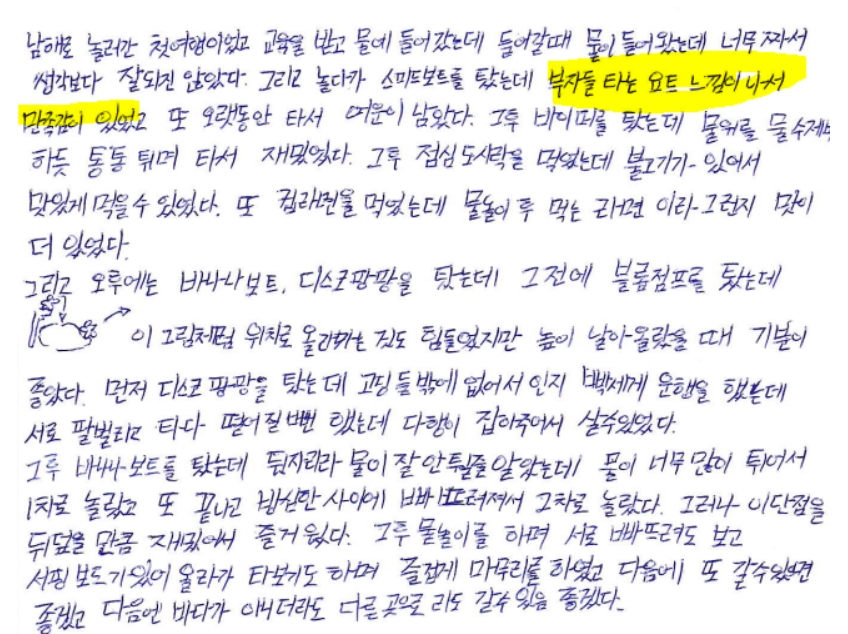 남해로 놀러간 첫여행이었고 교육을 받고 물에 들어갔는데 들어갈때 물이 들어왔는데 너무 짜서
생각보다 잘되진 않았다. 그리고 놀다가 스피드보트를 탔는데 부자들 타는 요트 느낌이 나서
만족감이 있었고 또 오랫동안 타서 여운이 남았다. 그후 바이퍼를 탔는데 물위를 물수제비
하듯 통통 튀며 타서 재밌었다. 그후 점심 도시락을 먹었는데 불고기가 있어서
맛있게 먹을수 있었다. 또 컵라면을 먹었는데 물놀이 후 먹는 라면 이라 그런지 맛이
더 있었다.
그리고 오후에는 바나나보트, 디스코팡팡을 탔는데 그전에 블롭점프를 탔는데
이 그림처럼 위치로 올라가는 것도 힘들었지만 높이 날아올랐을 때 기분이
좋았다. 먼저 디스코팡팡을 탔는데 고딩들밖에 없어서 인지 빡세게 운행을 했는데
서로 팔벌리고 타다 떨어질뻔 했는데 다행이 잡아주어서 살수있었다.
그후 바나나보트를 탔는데 뒷자리라 물이 잘 안튈줄 알았는데 물이 너무 많이 튀어서
1차로 놀랐고 또 끝나고 방심한 사이에 빠뜨려져서 2차로 놀랐다. 그러나 이단점을
뒤덮을 만큼 재밌어서 즐거웠다. 그후 물놀이를 하며 서로 빠뜨려도 보고
서핑보드가 있어 올라가 타보기도 하며 즐겁게 마무리를 하였고 다음에 또 갈수있으면
좋겠고 다음엔 바다가 아니더라도 다른 곳으로 라도 갈수 있음 좋겠다.